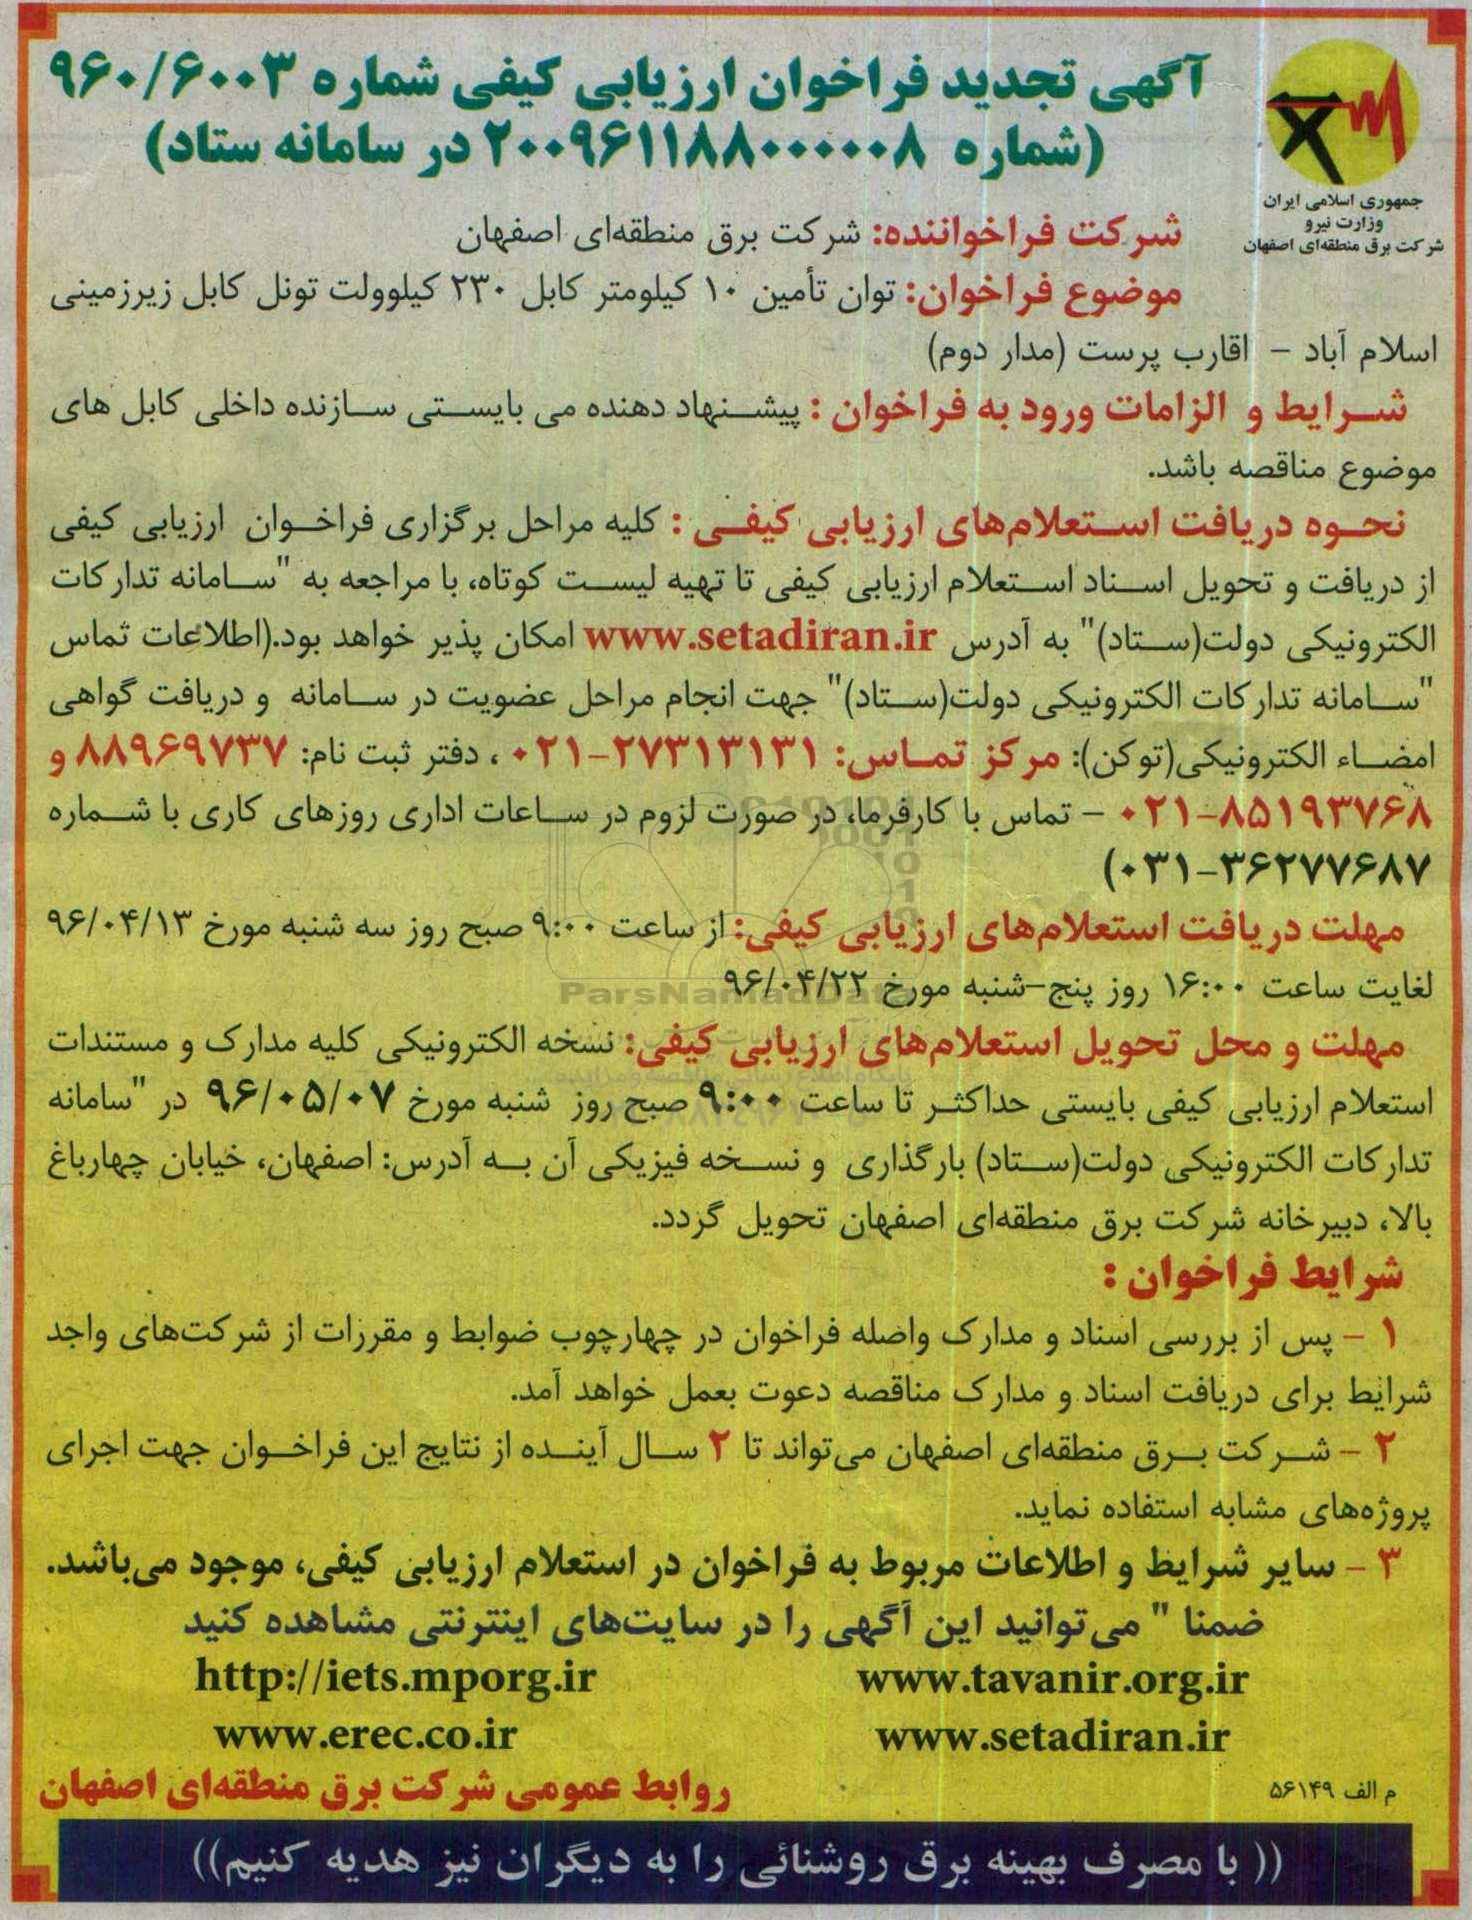 آگهی تجدید فراخوان ارزیابی کیفی شماره ۹۶۰/۶۰۰۳
(شماره ۲۰۰۹۶۱۱۸۸۰۰۰۰۰۸ در سامانه ستاد)
جمهوری اسلامی ایران
وزارت نیرو
شرکت برق منطقه‌ای اصفهان
شرکت فراخواننده: شرکت برق منطقه‌ای اصفهان
موضوع فراخوان: توان تأمین ۱۰ کیلومتر کابل ۲۳۰ کیلوولت تونل کابل زیرزمینی
اسلام آباد - اقارب پرست (مدار دوم)
شرایط و الزامات ورود به فراخوان : پیشنهاد دهنده می بایستی سازنده داخلی کابل های
موضوع مناقصه باشد.
نحوه دریافت استعلام‌های ارزیابی کیفی : کلیه مراحل برگزاری فراخوان ارزیابی کیفی
از دریافت و تحویل اسناد استعلام ارزیابی کیفی تا تهیه لیست کوتاه، با مراجعه به "سامانه تدارکات
الکترونیکی دولت(ستاد)" به آدرس www.setadiran.ir امکان پذیر خواهد بود.(اطلاعات تماس
"سامانه تدارکات الکترونیکی دولت(ستاد)" جهت انجام مراحل عضویت در سامانه و دریافت گواهی
امضاء الکترونیکی(توکن): مرکز تماس: ۲۷۳۱۳۱۳۱-۰۲۱ ، دفتر ثبت نام: ۸۸۹۶۹۷۳۷ و
۸۵۱۹۳۷۶۸-۰۲۱ - تماس با کارفرما، در صورت لزوم در ساعات اداری روزهای کاری با شماره
۳۶۲۷۷۶۸۷-۰۳۱)
مهلت دریافت استعلام‌های ارزیابی کیفی: از ساعت ۹:۰۰ صبح روز سه شنبه مورخ ۹۶/۰۴/۱۳
لغایت ساعت ۱۶:۰۰ روز پنج-شنبه مورخ ۹۶/۰۴/۲۲
ParsNamadData
مهلت و محل تحویل استعلام‌های ارزیابی کیفی: نسخه الکترونیکی کلیه مدارک و مستندات
استعلام ارزیابی کیفی بایستی حداکثر تا ساعت ۹:۰۰ صبح روز شنبه مورخ ۹۶/۰۵/۰۷ در "سامانه
تدارکات الکترونیکی دولت(ستاد) بارگذاری و نسخه فیزیکی آن به آدرس: اصفهان، خیابان چهارباغ
بالا، دبیرخانه شرکت برق منطقه‌ای اصفهان تحویل گردد.
شرایط فراخوان :
۱ - پس از بررسی اسناد و مدارک واصله فراخوان در چهارچوب ضوابط و مقررات از شرکت‌های واجد
شرایط برای دریافت اسناد و مدارک مناقصه دعوت بعمل خواهد آمد.
۲ - شرکت برق منطقه‌ای اصفهان می‌تواند تا ۲ سال آینده از نتایج این فراخوان جهت اجرای
پروژه‌های مشابه استفاده نماید.
۳ - سایر شرایط و اطلاعات مربوط به فراخوان در استعلام ارزیابی کیفی، موجود می‌باشد.
ضمنا " می‌توانید این آگهی را در سایت‌های اینترنتی مشاهده کنید
www.tavanir.org.ir http://iets.mporg.ir
www.setadiran.ir www.erec.co.ir
م الف ۵۶۱۴۹ روابط عمومی شرکت برق منطقه‌ای اصفهان
(( با مصرف بهینه برق روشنائی را به دیگران نیز هدیه کنیم))